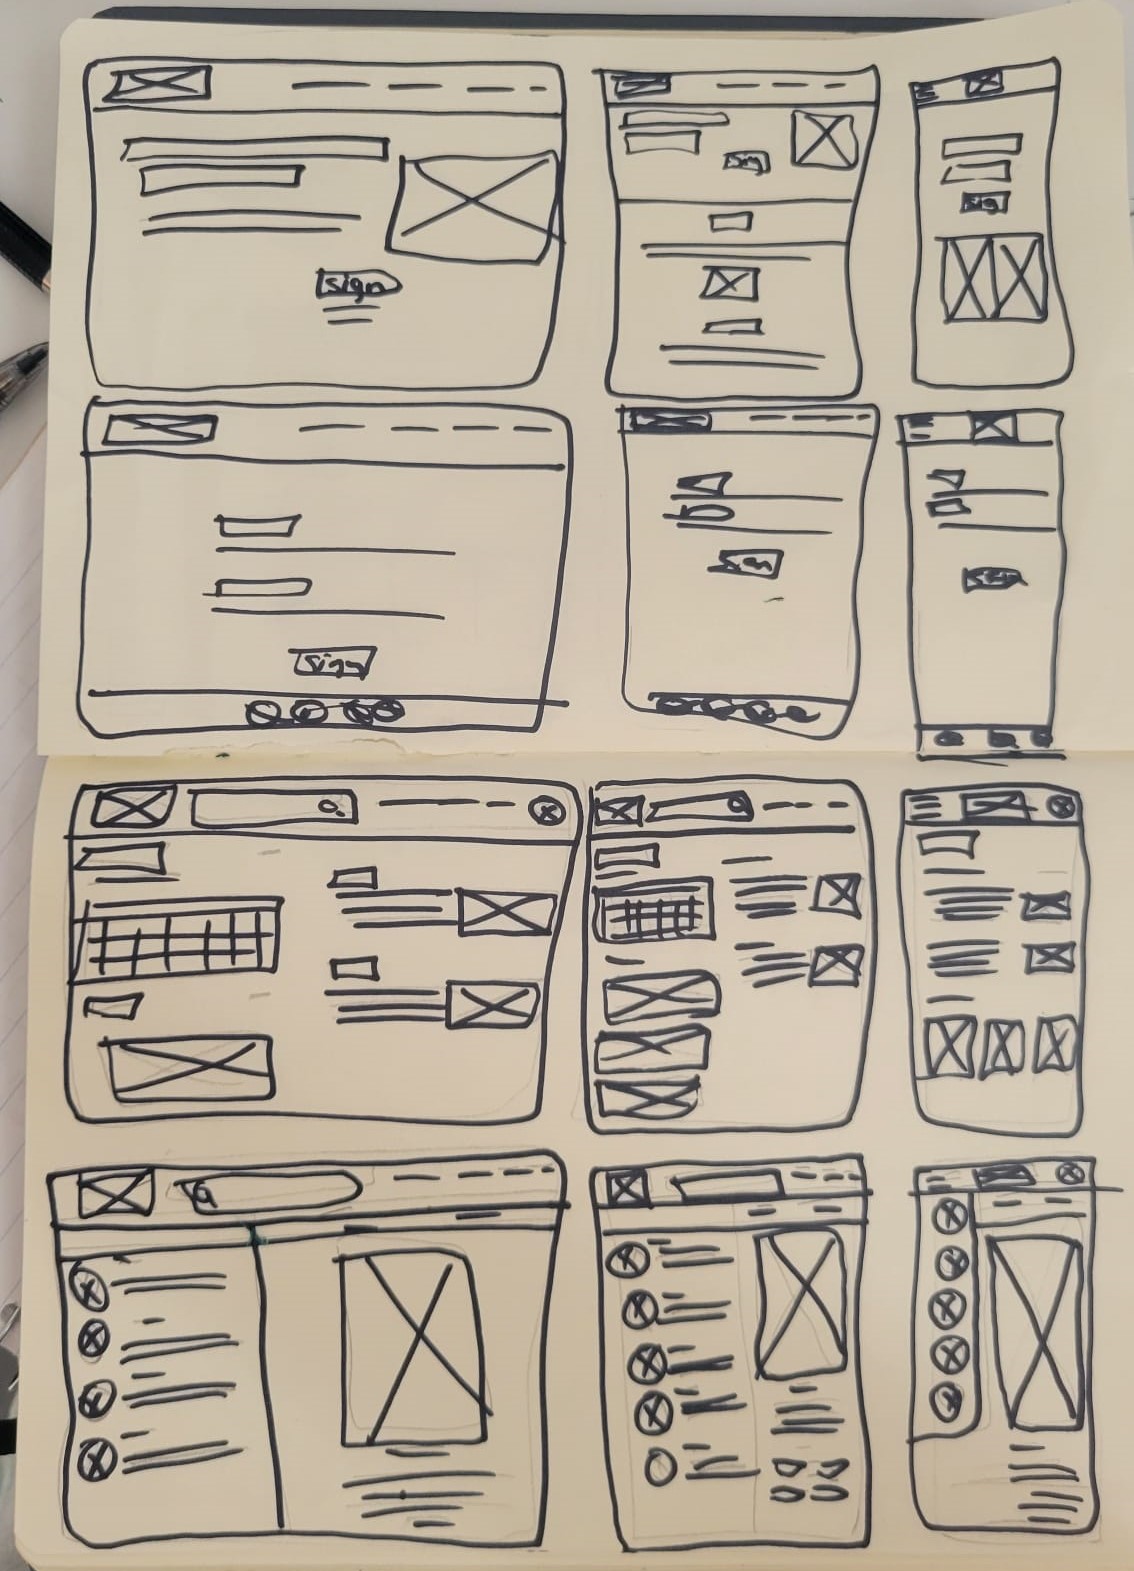 sign
sig
sig
sign
sign
sign